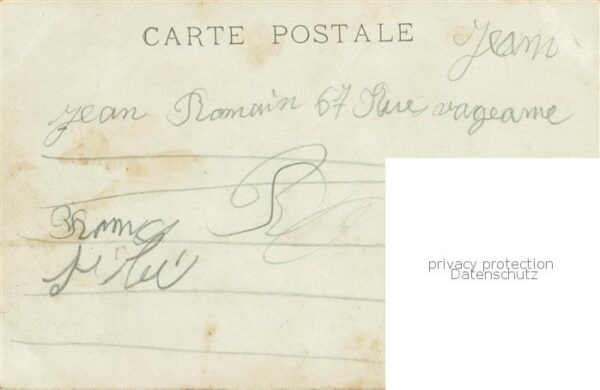 CARTE POSTALE
Jean
Jean Romain 67 Rue
R
Rom
privacy protection
Datenschutz